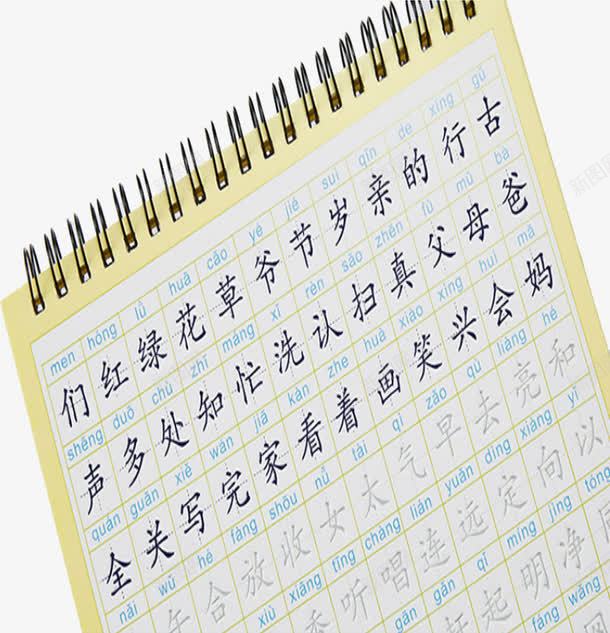 men hóng lǜ huā cǎo yé jié suì qīn de xíng gǔ
们 红 绿 花 草 爷 节 岁 亲 的 行 古
shēng duō chù zhī máng xǐ rèn sǎo zhēn fù mǔ bà
声 多 处 知 忙 洗 认 扫 真 父 母 爸
quán guān xiě wán jiā kàn zhe huà xiào xìng huì mā
全 关 写 完 家 看 着 画 笑 兴 会 妈
nǎi wǔ hé fàng shōu nǚ tài qì zǎo qù liàng hé
午 合 放 收 女 太 气 早 去 亮 和
xiù xiāng tīng chàng lián yuǎn dìng xiàng yǐ
香 听 唱 连 远 定 向 以
gān gǎn qǐ míng jìng tóng
赶 起 明 净 同
fáng wǎng
新图网